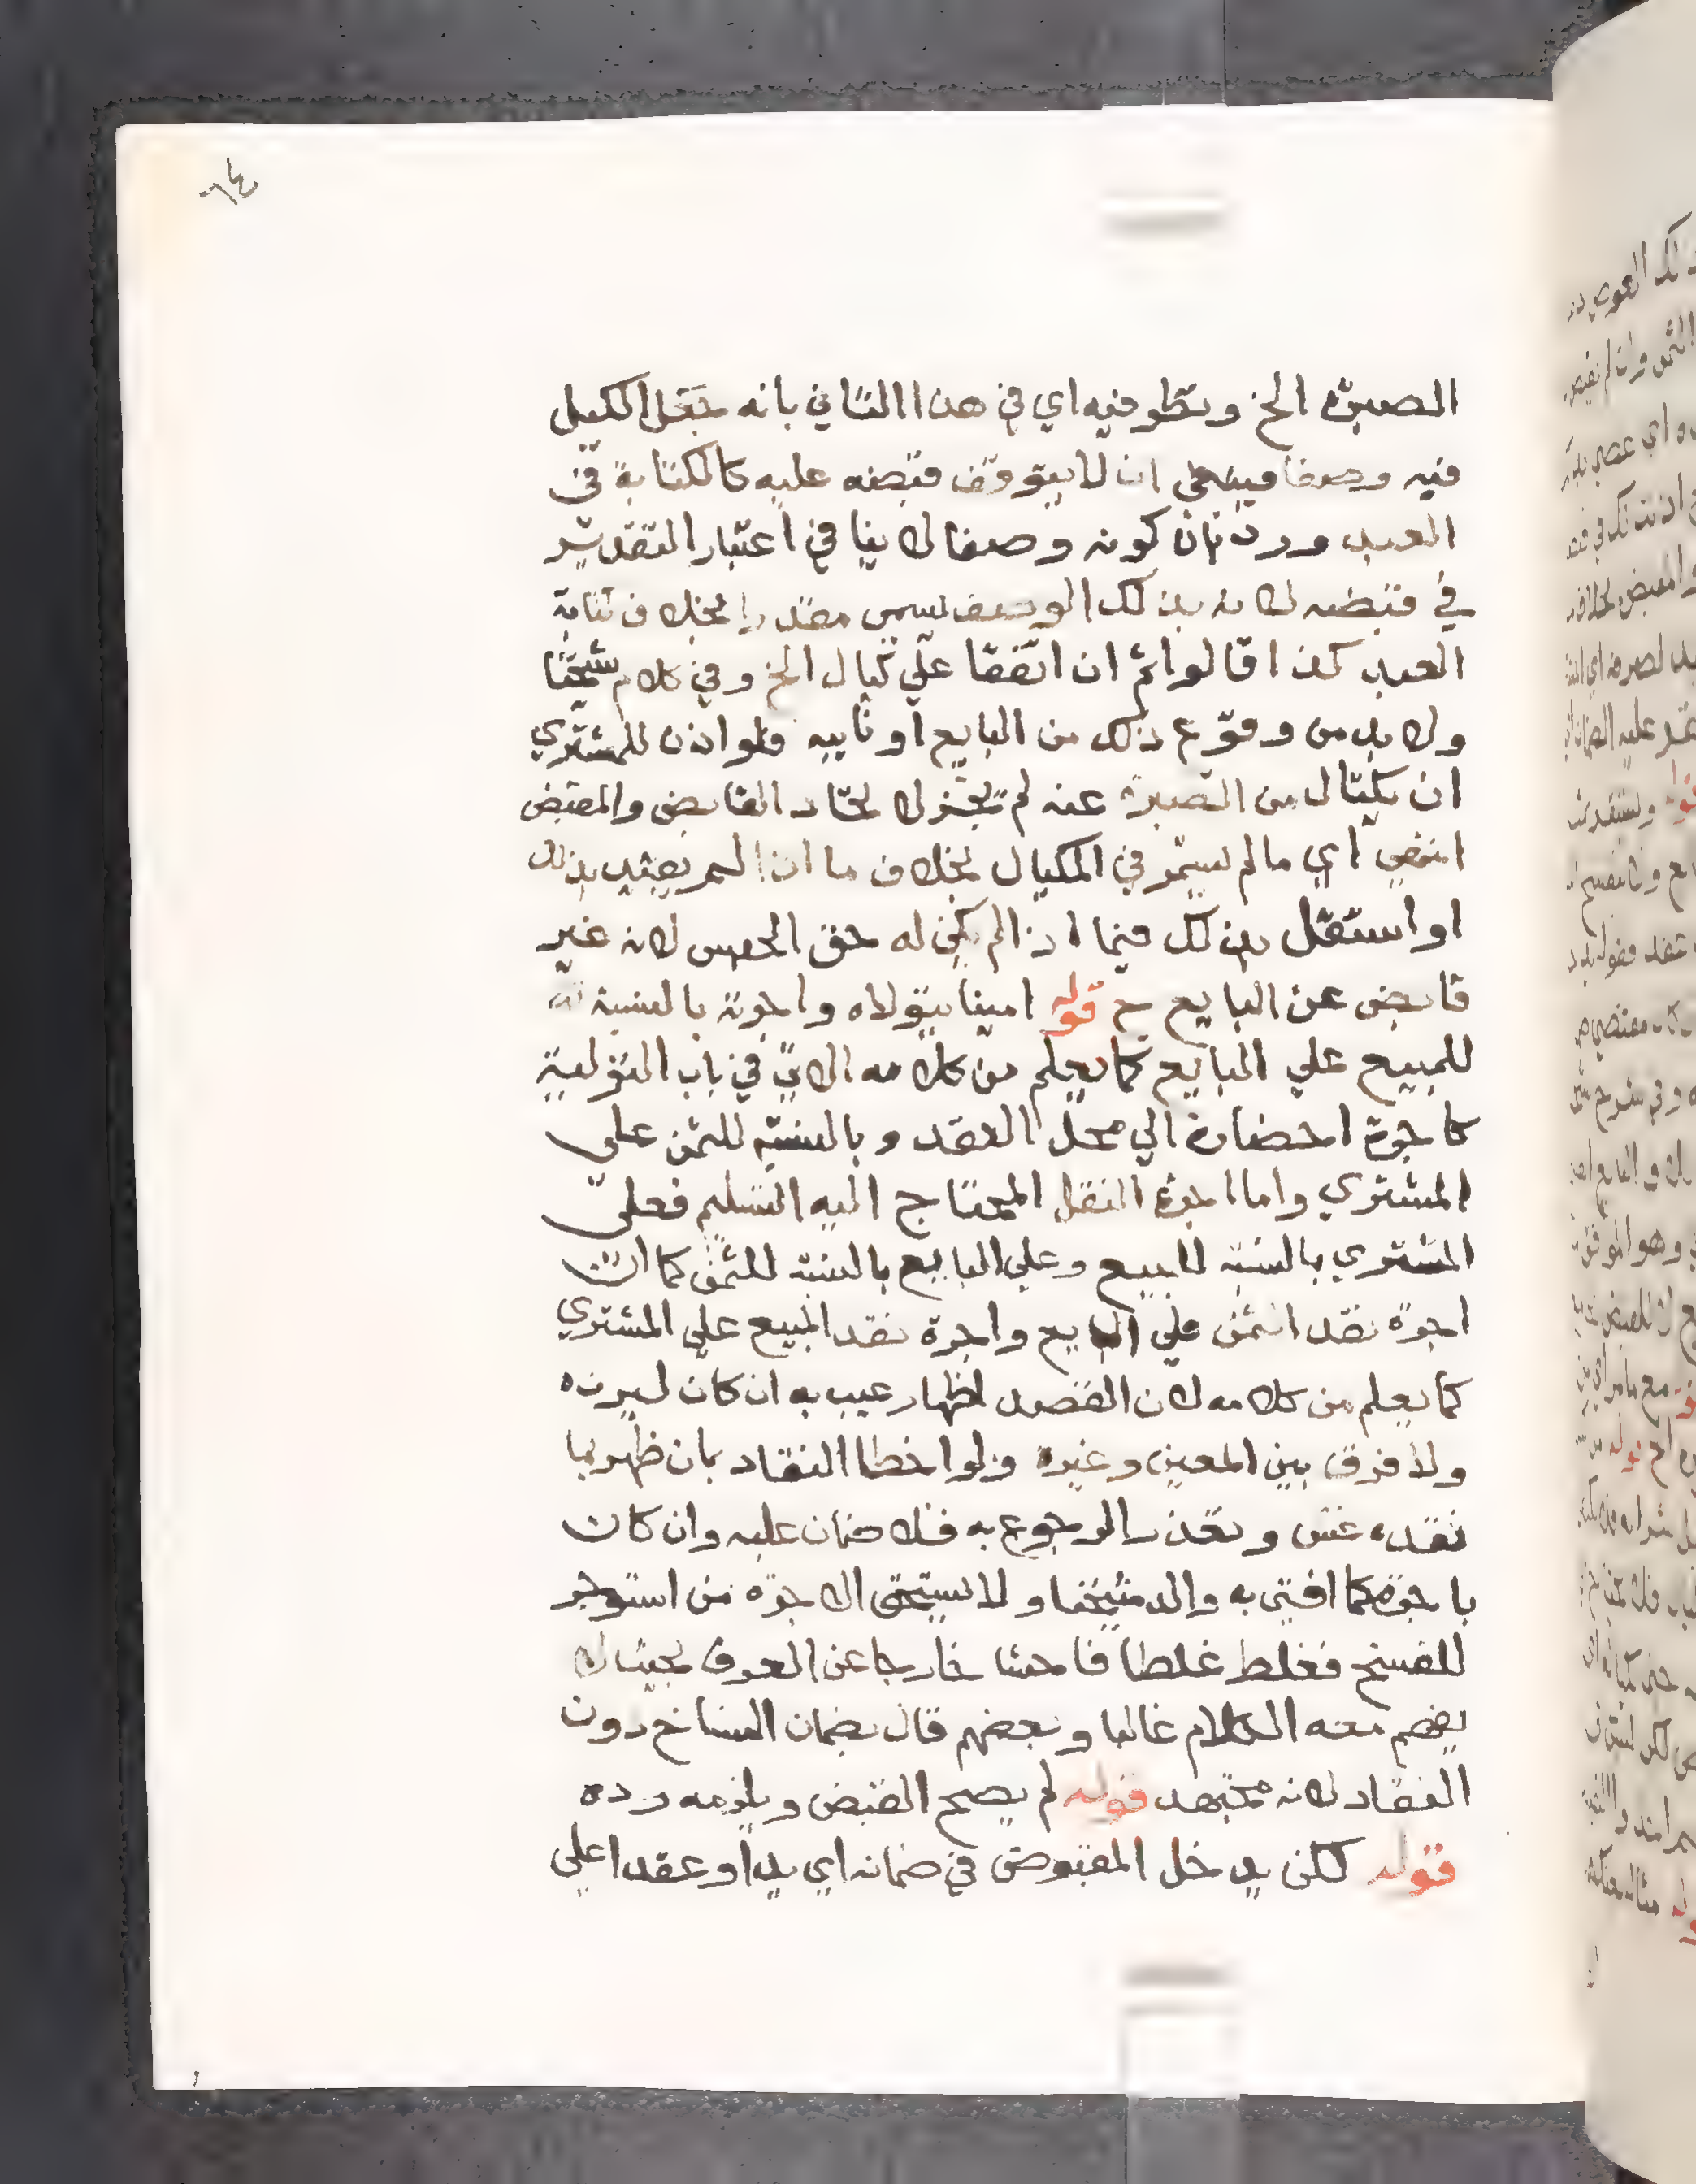 ٦٤
الصبرة الخ ونظر فيه اي في هذا الثاني بانه جعل الكيل
فيه وصفا فينبغي ان لا يتوقف قبضه عليه كالكتابة في
العبد ورد بان كونه وصفا لا ينافي اعتبار التقدير
في قبضه لانه بذلك الوصف يسمى مقدرا بخلاف كتابة
العبد كذا قالوا ثم ان اتفقا علي كيال الخ وفي كلام شيخنا
ولا بد من وقوع ذلك من البايع او نايبه فلو اذن للمشتري
ان يكتال من الصبرة عنه لم يجز لاتحاد القابض والمقبض
انتهي اي ما لم يستمر في المكيال بخلاف ما اذا لم يعتد بذلك
او استقل بذلك فيما اذا لم يكن له حق الحبس لانه غير
قابض عن البايع ح قوله امينا يتولاه واجرته بالنسبة
للمبيع علي البايع كما يعلم من كلامه الاتي في باب التولية
كاجرة احضاره الي محل العقد وبالنسبة للثمن علي
المشتري واما اجرة النقل المحتاج اليه التسليم فعلي
المشتري بالنسبة للمبيع وعلي البايع بالنسبة للثمن كما ان
اجرة نقد الثمن علي البايع واجرة نقد المبيع علي المشتري
كما يعلم من كلامه لان القصد اظهار عيب به ان كان ليرده
ولا فرق بين المعين وغيره ولو اخطا النقاد بان ظهر بما
نقده غش وتعذر الرجوع به فلا ضمان عليه وان كان
باجرة كما افتي به والد شيخنا ولا يستحق الاجرة من استوجر
للنسخ فغلط غلطا فاحشا خارجا عن العرف بحيث لا
يفهم معه الكلام غالبا وبعضهم قال بضمان النساخ دون
النقاد لانه مجتهد قوله لم يصح القبض ويلزمه رده
قوله لكن يدخل المقبوض في ضمانه اي يدا وعقدا علي